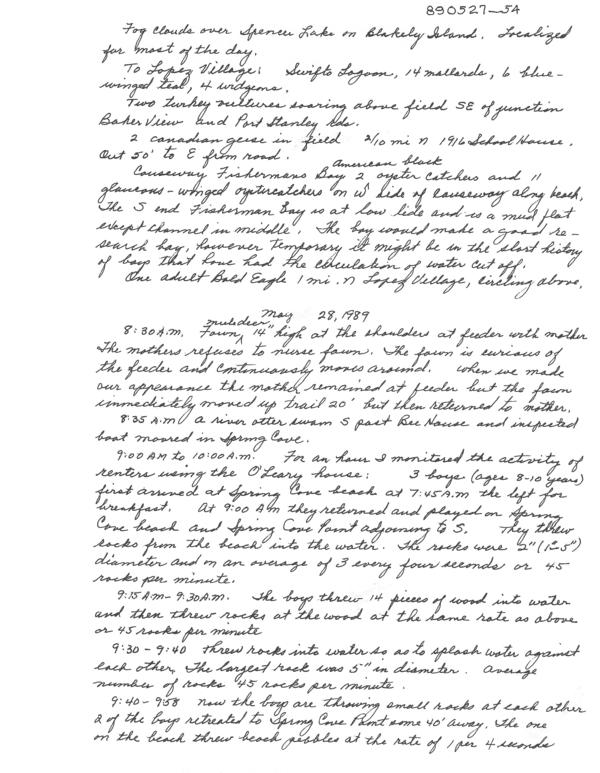 890527-54
Fog clouds over Spencer Lake on Blakely Island. Localized
for most of the day.
To Lopez Village: Swifts Lagoon, 14 mallards, 6 blue-
winged teal, 4 widgeons.
Two turkey vultures soaring above field SE of junction
Baker View and Port Stanley Rds.
2 canadian geese in field 2/10 mi N 1916 School House.
Out 50' to E from road.
american black
Causeway Fishermans Bay 2 oyster catchers and 11
glaucous-winged oystercatchers on W side of causeway along beach.
The S end Fisherman Bay is at low tide and is a mud flat
except channel in middle. The bay would make a good re-
search bay, however temporary it might be in the short history
of bays that have had the circulation of water cut off.
One adult Bald Eagle 1 mi. N Lopez Village, circling above.
May 28, 1989
mule deer
8:30 A.M. Fawn, 14" high at the shoulders at feeder with mother
The mothers refuses to nurse fawn. The fawn is curious of
the feeder and continuously moves around. When we made
our appearance the mother remained at feeder but the fawn
immediately moved up trail 20' but then returned to mother.
8:35 A.M. A river otter swam S past Bee House and inspected
boat moored in Spring Cove.
9:00 AM to 10:00 A.M. For an hour I monitored the activity of
renters using the O'Leary house: 3 boys (ages 8-10 years)
first arrived at Spring Cove beach at 7:45 A.M the left for
breakfast. At 9:00 AM they returned and played on Spring
Cove beach and Spring Cove Point adjoining to S. They threw
rocks from the beach into the water. The rocks were 2" (1"-5")
diameter and on an average of 3 every four seconds or 45
rocks per minute.
9:15 AM-9:30 A.M. The boys threw 14 pieces of wood into water
and then threw rocks at the wood at the same rate as above
or 45 rocks per minute
9:30 - 9:40 threw rocks into water so as to splash water against
each other. The largest rock was 5" in diameter. Average
number of rocks 45 rocks per minute.
9:40-9:58 now the boys are throwing small rocks at each other
2 of the boys retreated to Spring Cove Point some 40' away. The one
on the beach threw beach pebbles at the rate of 1 per 4 seconds